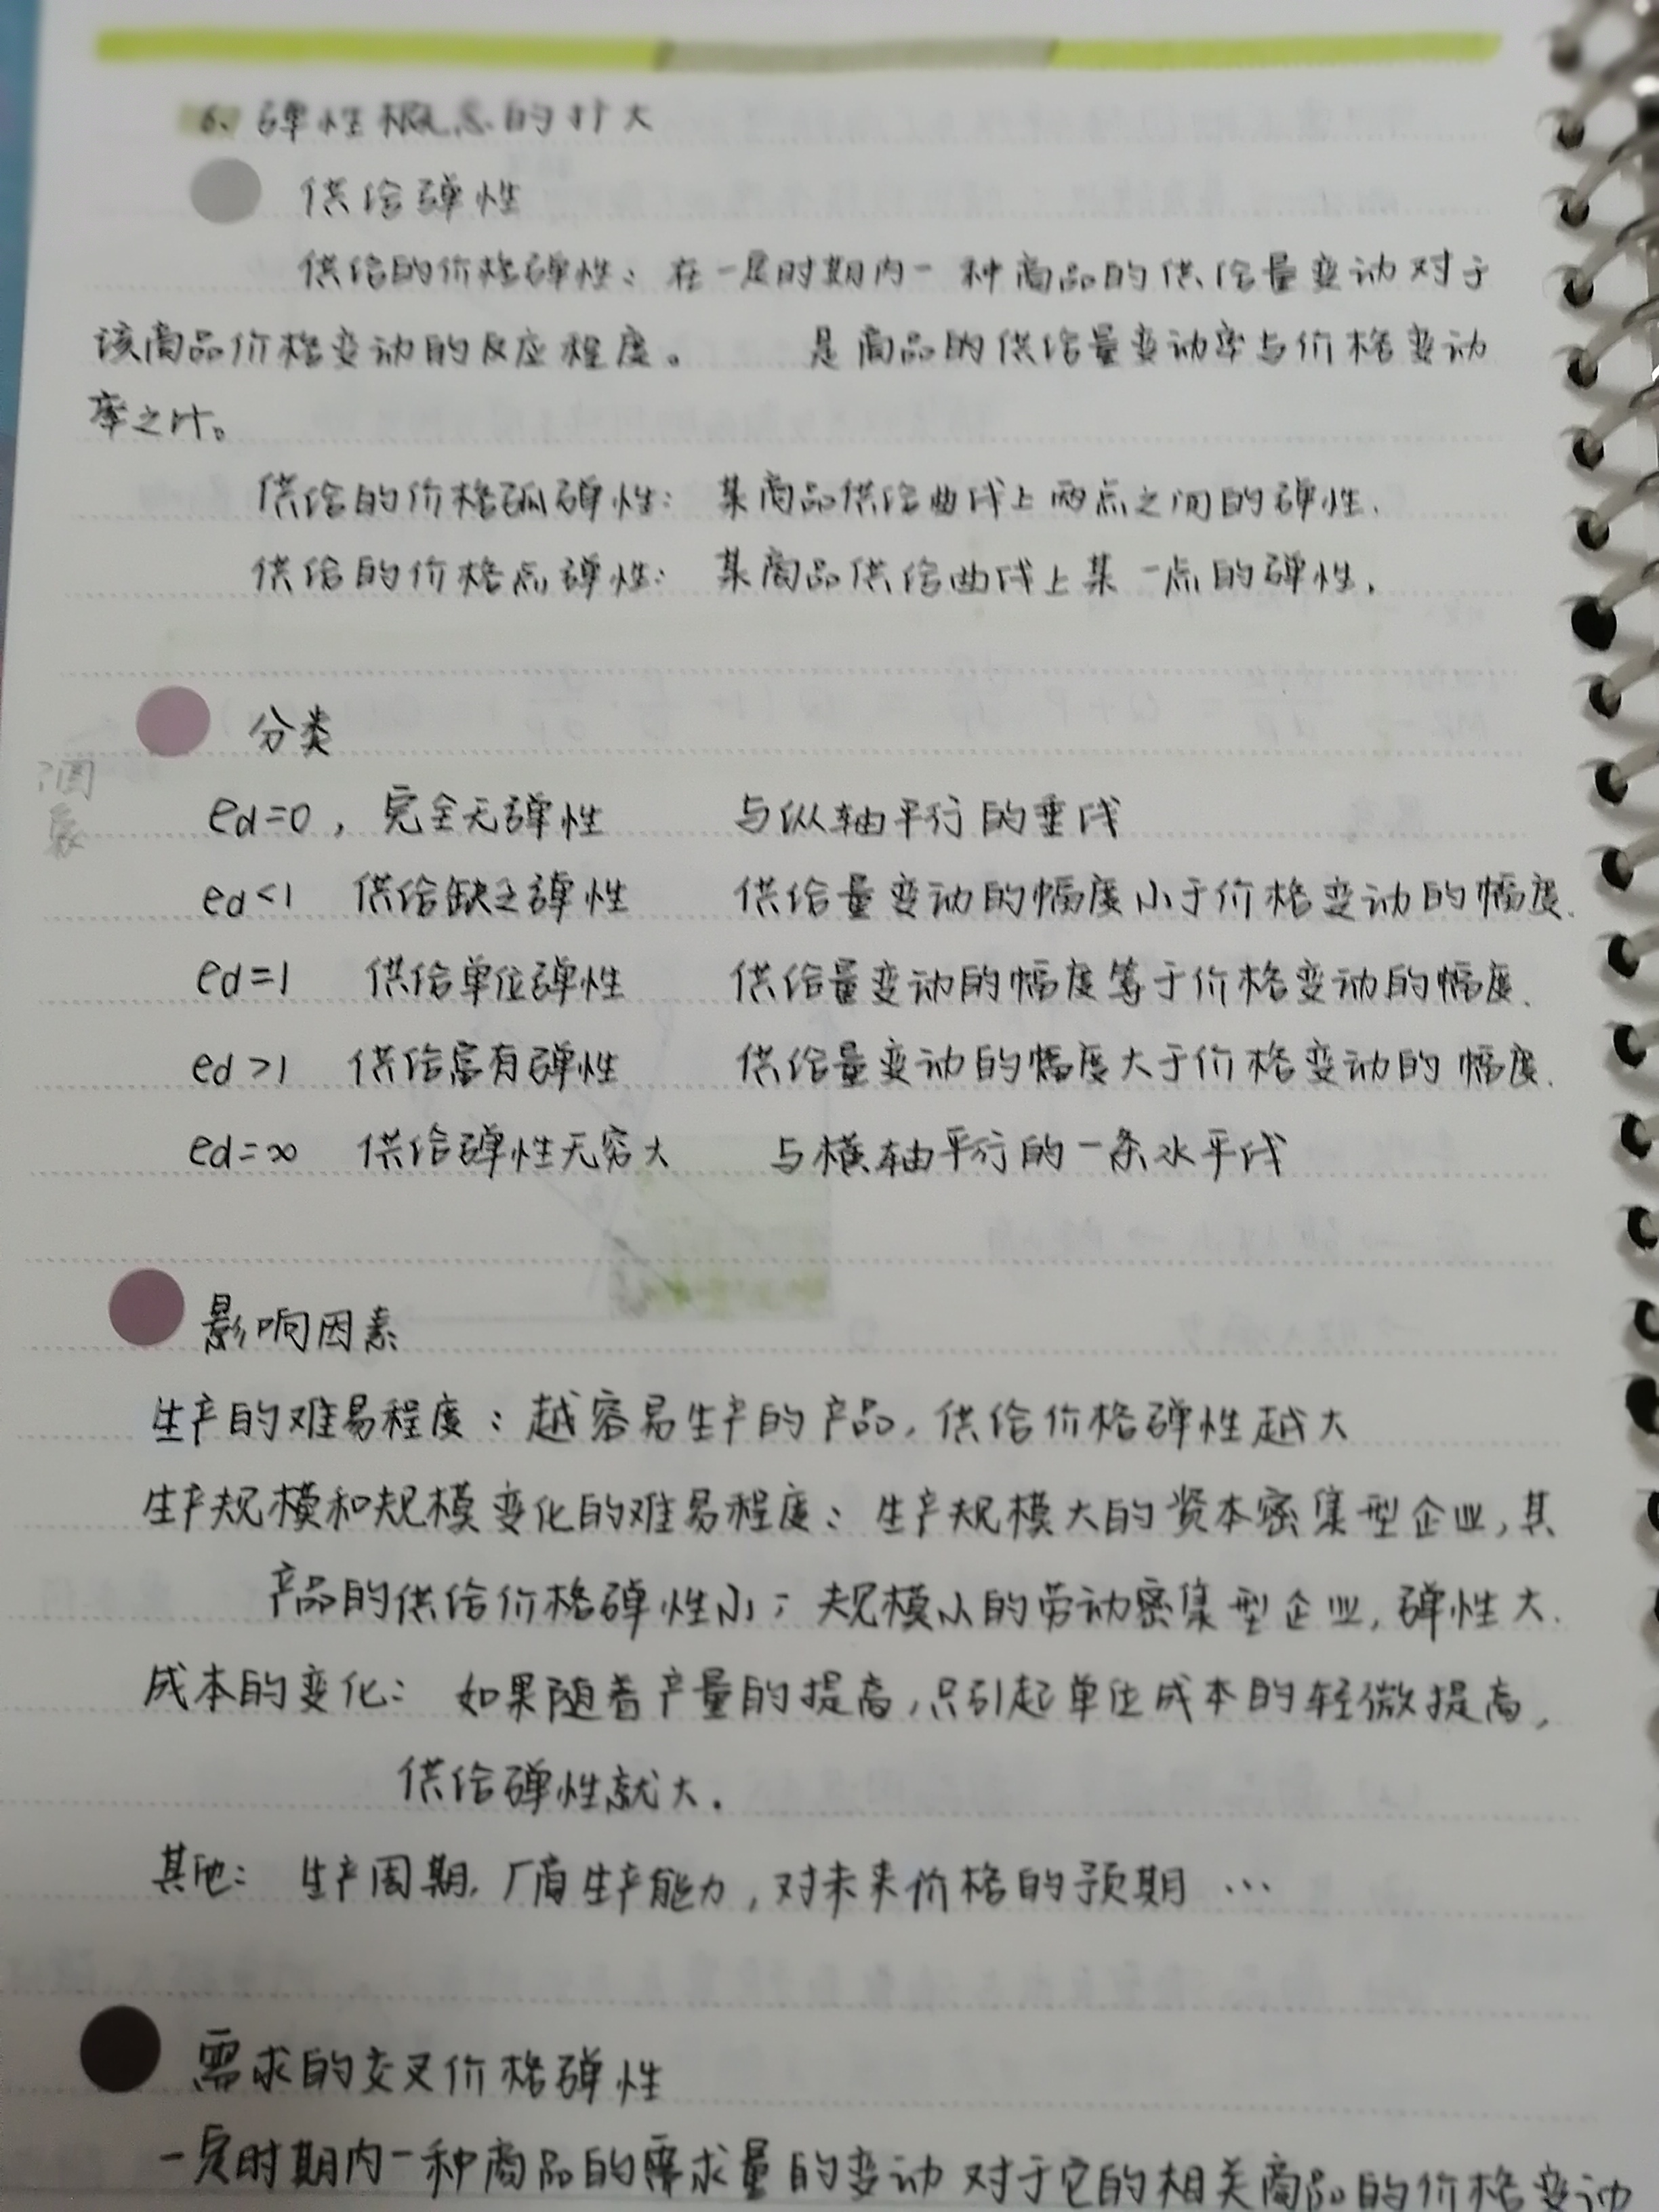 6、弹性概念的扩大
供给弹性
供给的价格弹性：在一定时期内一种商品的供给量变动对于
该商品价格变动的反应程度。 是商品的供给量变动率与价格变动
率之比。
供给的价格弧弹性： 某商品供给曲线上两点之间的弹性.
供给的价格点弹性： 某商品供给曲线上某一点的弹性.
分类
?图
象
ed=0，完全无弹性 与纵轴平行的垂线
ed<1 供给缺乏弹性 供给量变动的幅度小于价格变动的幅度.
ed=1 供给单位弹性 供给量变动的幅度等于价格变动的幅度.
ed>1 供给富有弹性 供给量变动的幅度大于价格变动的幅度.
ed=∞ 供给弹性无穷大 与横轴平行的一条水平线
影响因素
生产的难易程度：越容易生产的产品,供给价格弹性越大
生产规模和规模变化的难易程度：生产规模大的资本密集型企业,其
产品的供给价格弹性小；规模小的劳动密集型企业,弹性大.
成本的变化： 如果随着产量的提高,只引起单位成本的轻微提高,
供给弹性就大.
其他： 生产周期,厂商生产能力,对未来价格的预期…
需求的交叉价格弹性
一定时期内一种商品的需求量的变动对于它的相关商品的价格变动